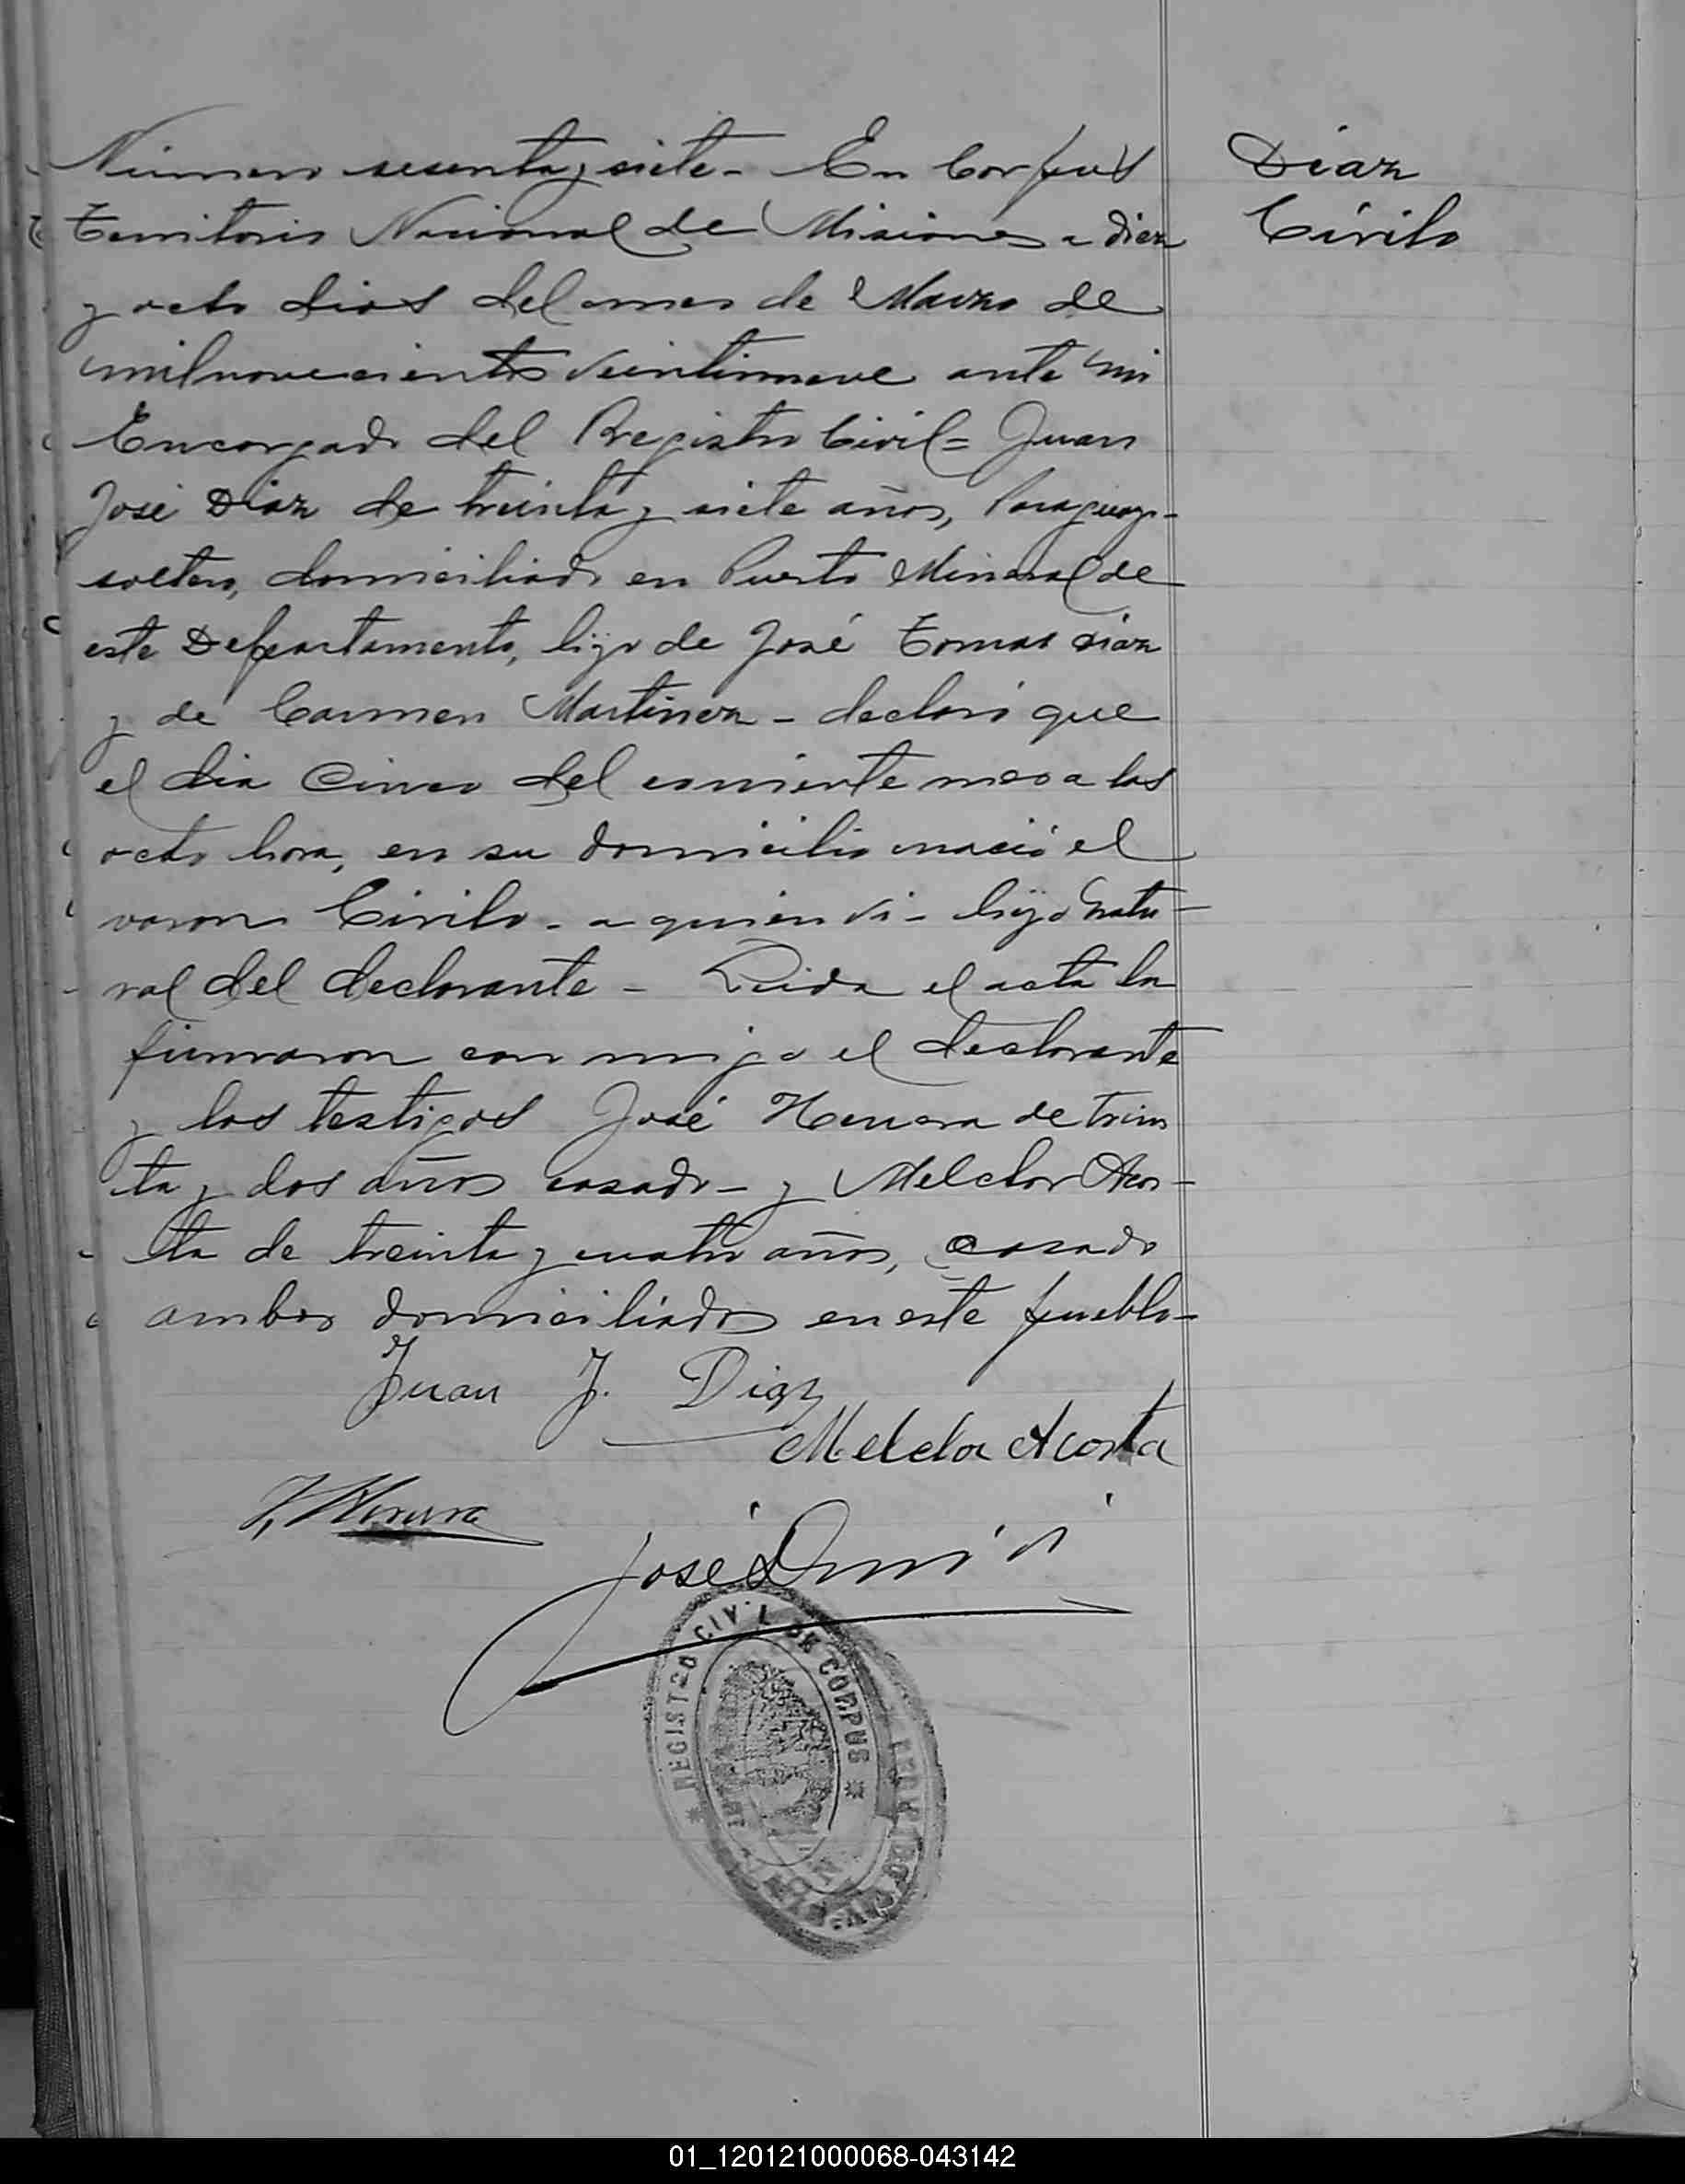 Número sesenta y siete - En Corpus
Territorio Nacional de Misiones a diez
y ocho dias del mes de Marzo de
mil novecientos veintinueve ante mi
Encargado del Registro Civil = Juan
José Diaz de treinta y siete años, Paraguayo-
soltero, domiciliado en Puerto Mineral de
este Departamento, hijo de José Tomas Diaz
y de Carmen Martinez - declaró que
el dia Cinco del corriente mes a las
ocho hora, en su domicilio nació el
varon Cirilo - a quien vi - hijo natu-
ral del declarante - Leida el acta la
firmaron con migo el declarante
y los testigos José Herrera de trein
ta y dos años casado - y Melchor Acos-
ta de treinta y cuatro años, casado
ambos domiciliados en este pueblo -
Diaz
Cirilo
Juan J. Diaz
Melchor Acosta
J. Herrera
José
REGISTRO CIVIL DE CORPUS
01_120121000068-043142